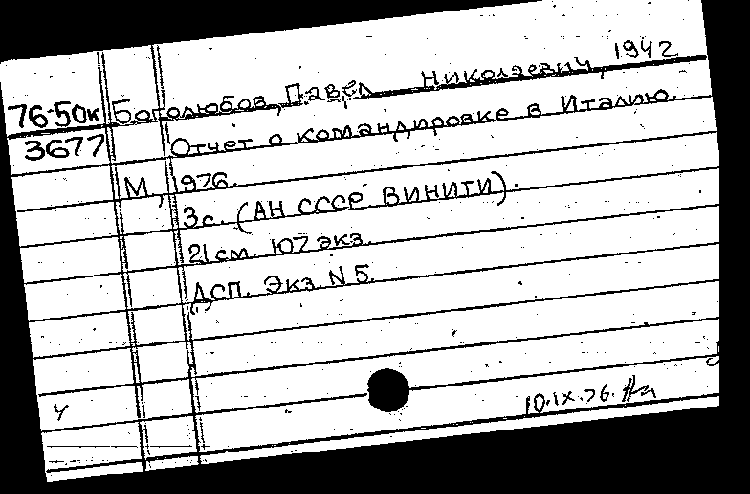 76-50к Боголюбов, Павел Николаевич, 1942
3677 Отчет о командировке в Италию.
М., 1976.
3с. (АН СССР ВИНИТИ).
21см. 107 экз.
ДСП. Экз N 5.
ч
10.IX.76.